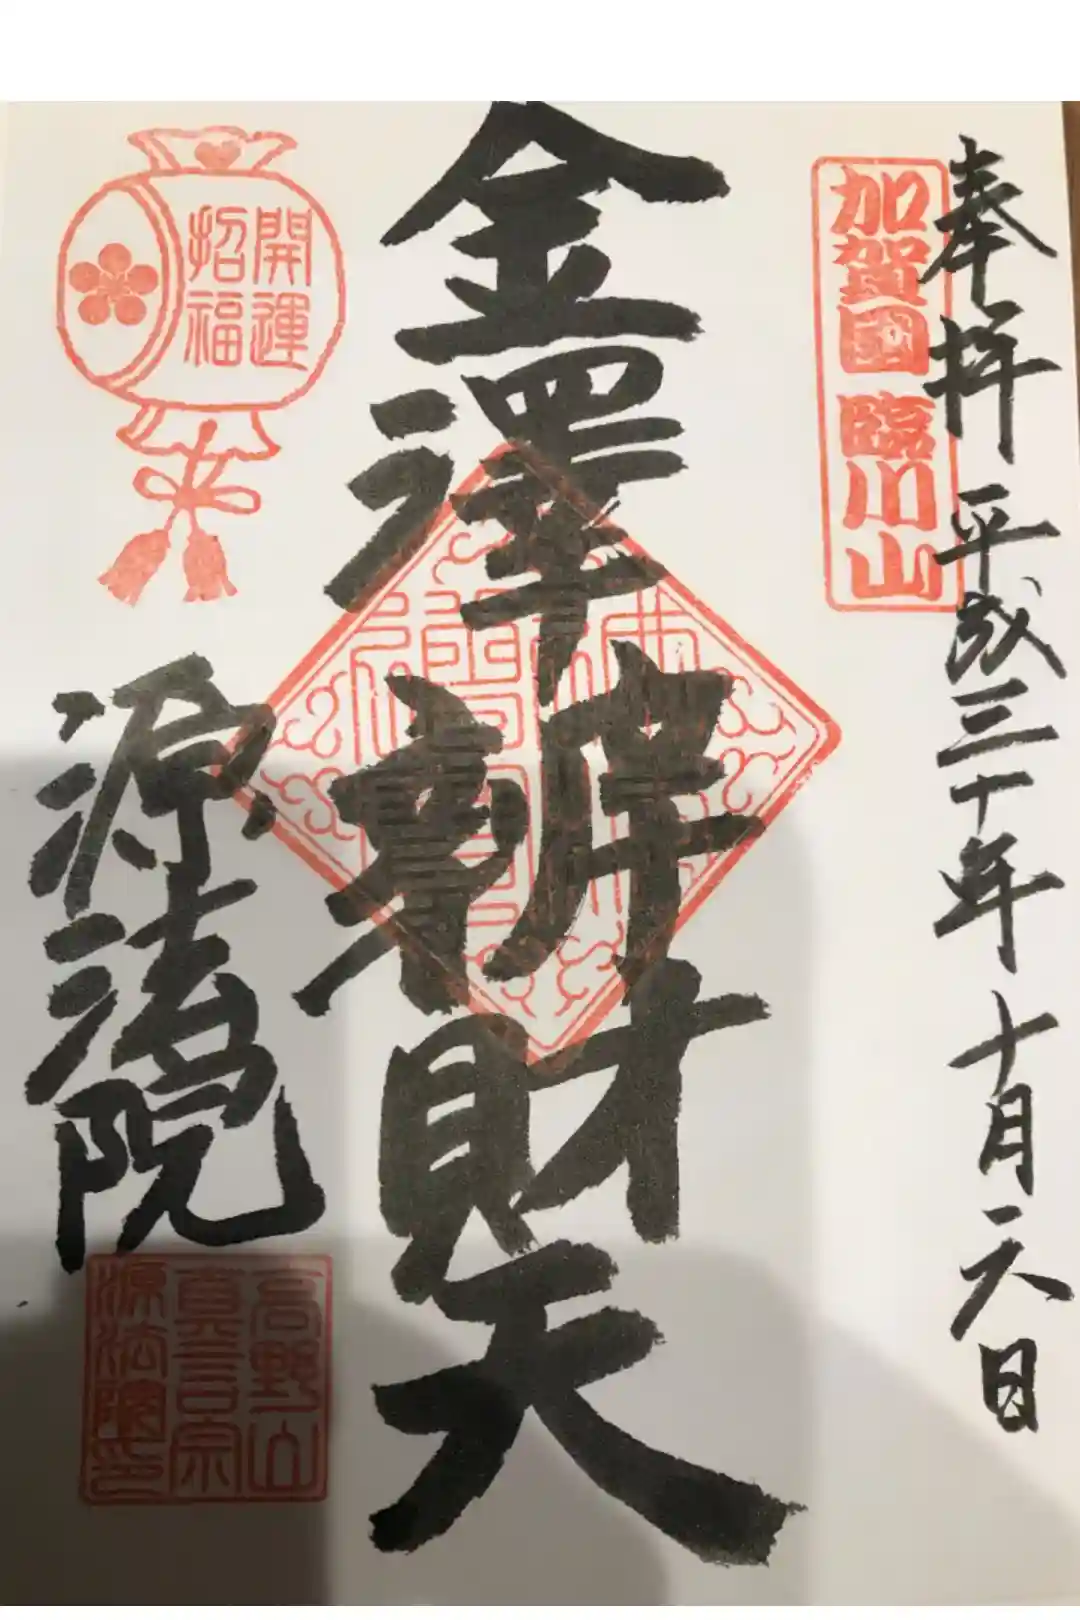 奉拝 平成三十年十月
加賀國 臨川山
金澤辨財天
開運
招福
源法院
高野山
真言宗
源法院印